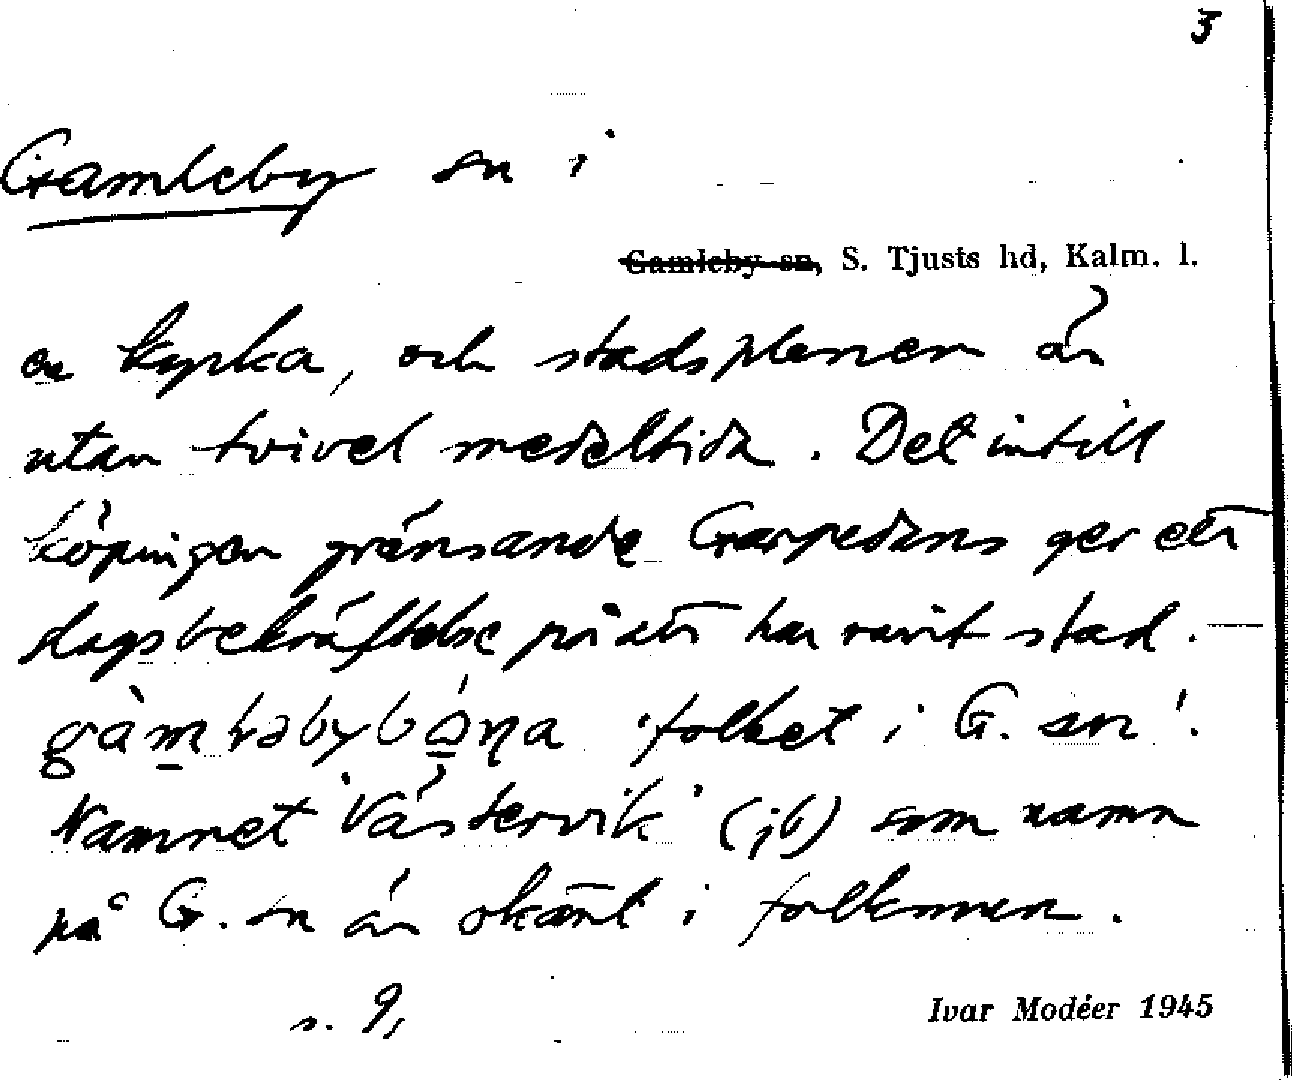 3
Gamleby sn i
Gamleby sn, S. Tjusts hd, Kalm. l.
en kyrka, och stadsplanen är
utan tvivel medeltida. Det intill
köpingen gränsande Garpedans ger ett
slags bekräftelse på att har varit stad.
gàmləbybóṇa 'folket i G. sn'.
Namnet 'Västervik' (jb) som namn
på G. sn är okänt i folkmun.
s. 9,
Ivar Modéer 1945